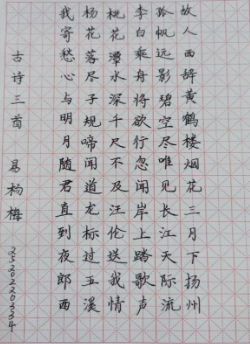 故人西辞黄鹤楼烟花三月下扬州
孤帆远影碧空尽唯见长江天际流
李白乘舟将欲行忽闻岸上踏歌声
桃花潭水深千尺不及汪伦送我情
杨花落尽子规啼闻道龙标过五溪
我寄愁心与明月随君直到夜郎西
古诗三首 易杨梅